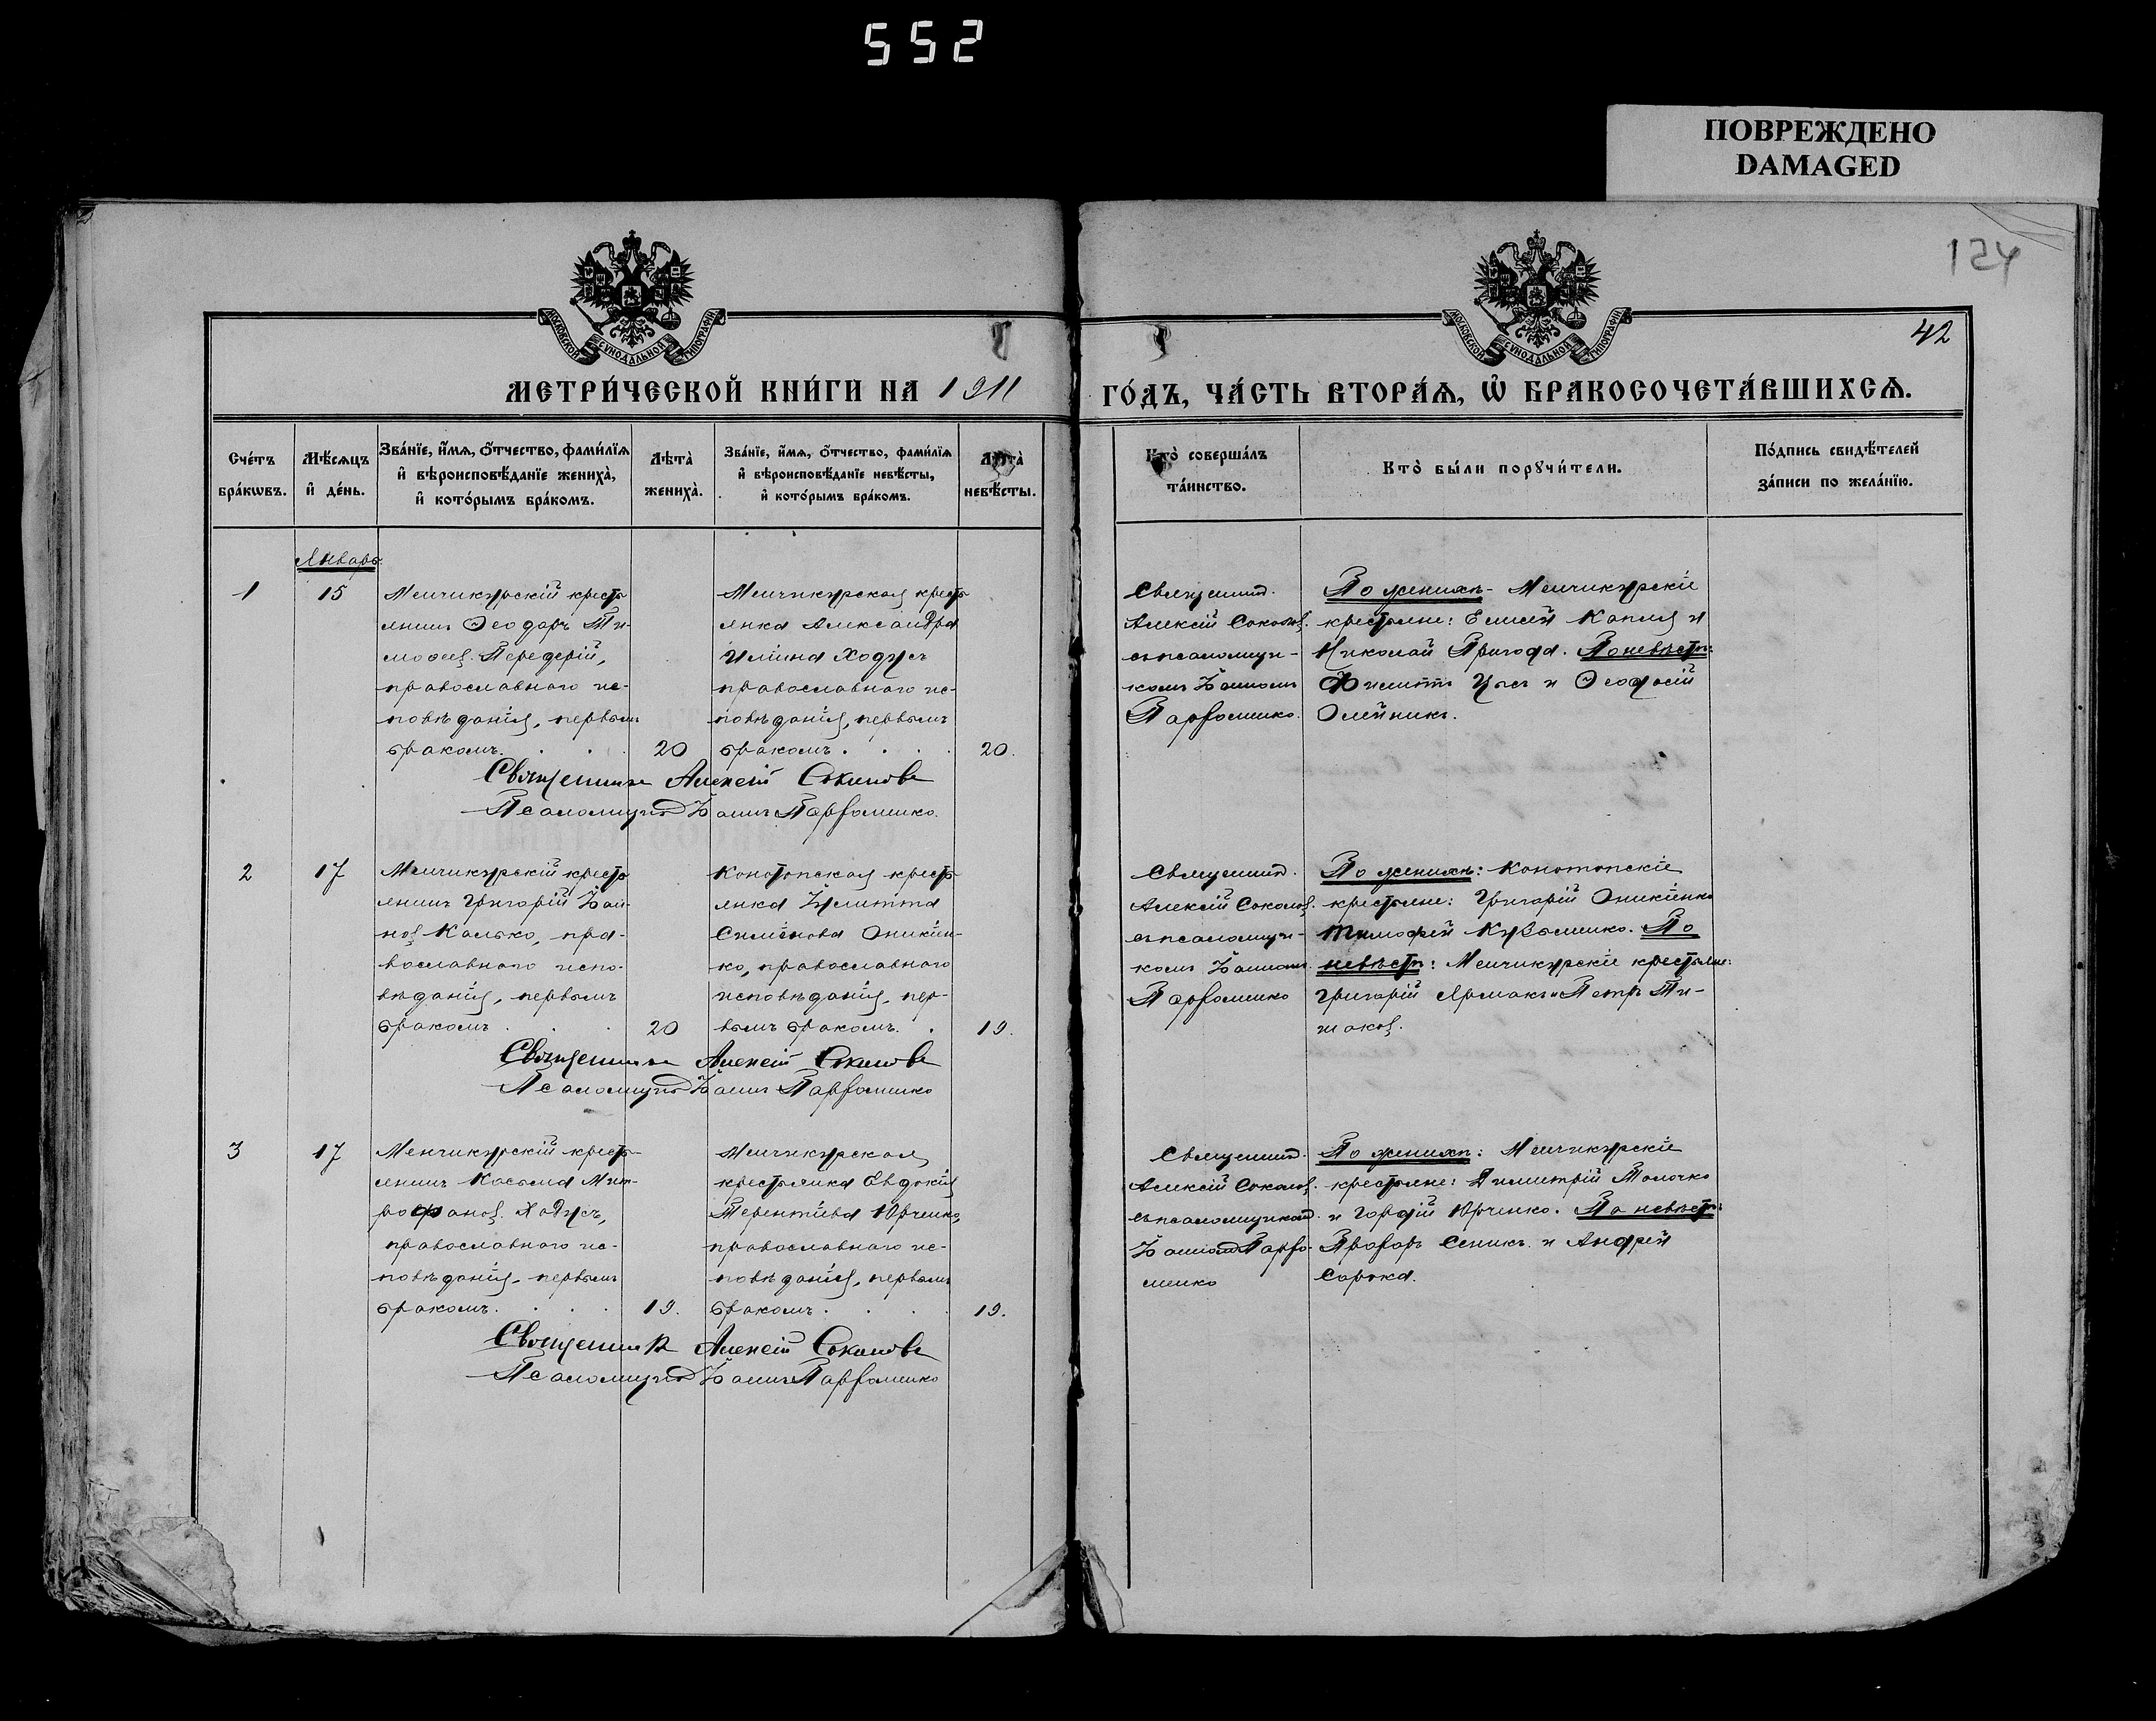 552
ПОВРЕЖДЕНО
DAMAGED
124
42
МОСКОВСКОЙ СѴНОДАЛЬНОЙ ТИПОГРАФІИ
МОСКОВСКОЙ СѴНОДАЛЬНОЙ ТИПОГРАФІИ
МЕТРИ́ЧЕСКОЙ КНИ́ГИ НА 1911
ГО́ДЪ, ЧА́СТЬ ВТОРА́Ѧ, Ѡ҆ БРАКОСОЧЕТА́ВШИХСѦ.
Сче́тъ
бра́кѡвъ.
Мѣ́сѧцъ
и҆ де́нь.
Зва́нїе, и҆́мѧ, ѻ҆́тчество, фами́лїѧ
и҆ вѣроисповѣ́данїе жениха̀,
и҆ кото́рымъ бра́комъ.
Лѣта̀
жениха̀.
Зва́нїе, и҆́мѧ, ѻ҆́тчество, фами́лїѧ
и҆ вѣроисповѣ́данїе невѣ́сты,
и҆ кото́рымъ бра́комъ.
Лѣта̀
невѣ́сты.
Кто̀ соверша́лъ
та́инство.
Кто̀ бы́ли порꙋчи́тели.
По́дпись свидѣ́телей
за́писи по жела́нїю.
Январь.
1
15
Менчикурскій кресть
янинъ Ѳеодоръ Ти-
моѳеев. Передерій,
православнаго ис-
повѣданія, первымъ
бракомъ.
20
Менчикурская кресть
янка Александра
Иліина Ходусъ
православнаго ис-
повѣданія, первымъ
бракомъ.
20.
Священник.
Алексій Соколов.
съ псаломщи-
комъ Іоанномъ
Парфоменко.
По женихѣ - Менчикурскіе
крестьяне: Елисей Капля и
Николай Пригода. По невѣстѣ:
Филиппъ Цысъ и Ѳеодосій
Олейникъ.
Священникъ Алексій Соколовъ
Псаломщикъ Іоаннъ Парфоменко.
2
17
Менчикурскій кресть
янинъ Григорій Іоан-
нов. Калько, пра-
вославнаго испо-
вѣданія, первымъ
бракомъ
20
Конотопская кресть
янка Іулитта
Симеонова Оникіен-
ко, православнаго
исповѣданія, пер-
вымъ бракомъ.
19.
Священник.
Алексій Соколов.
съ псаломщи-
комъ Іоанномъ
Парфоменко
По женихѣ: Конотопскіе
крестьяне: Григорій Оникіенко
Тимофей Кузьменко. По
невѣстѣ: Менчикурскіе крестьяне:
Григорій Ярмакъ и Петръ Ти-
шаков.
Священникъ Алексій Соколовъ
Псаломщикъ Іоаннъ Парфоменко
3
17
Менчикурскій кресть-
янинъ Косьма Мит-
рофанов. Ходусъ,
православнаго ис-
повѣданія, первымъ
бракомъ.
19.
Менчикурская
крестьянка Евдокія
Терентіева Юрченко,
православнаго ис-
повѣданія, первымъ
бракомъ.
19.
Священник.
Алексій Соколов.
съ псаломщиком.
Іоанном Парфо-
менко
По женихѣ: Менчикурскіе
крестьяне: Димитрій Толочко
и Гордій Юрченко. По невѣстѣ:
Прохоръ Сеникъ и Андрей
Сорока.
Священник Алексій Соколовъ
Псаломщикъ Іоаннъ Парфоменко